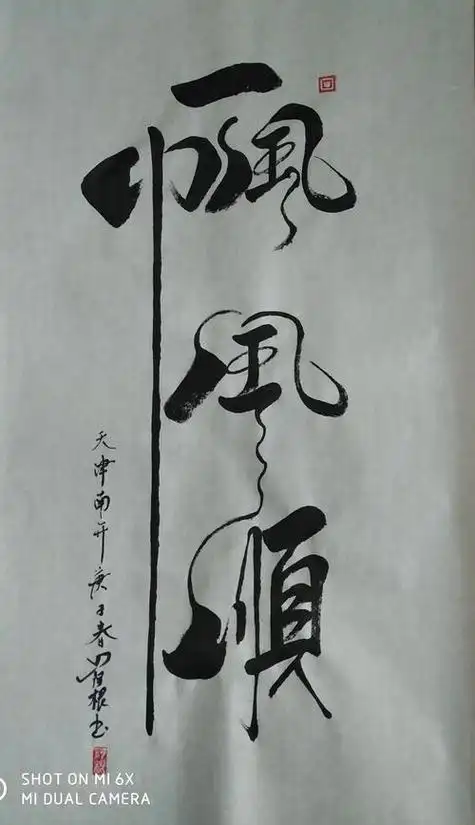 一帆風順
天津南开庚子春根书
SHOT ON MI 6X
MI DUAL CAMERA